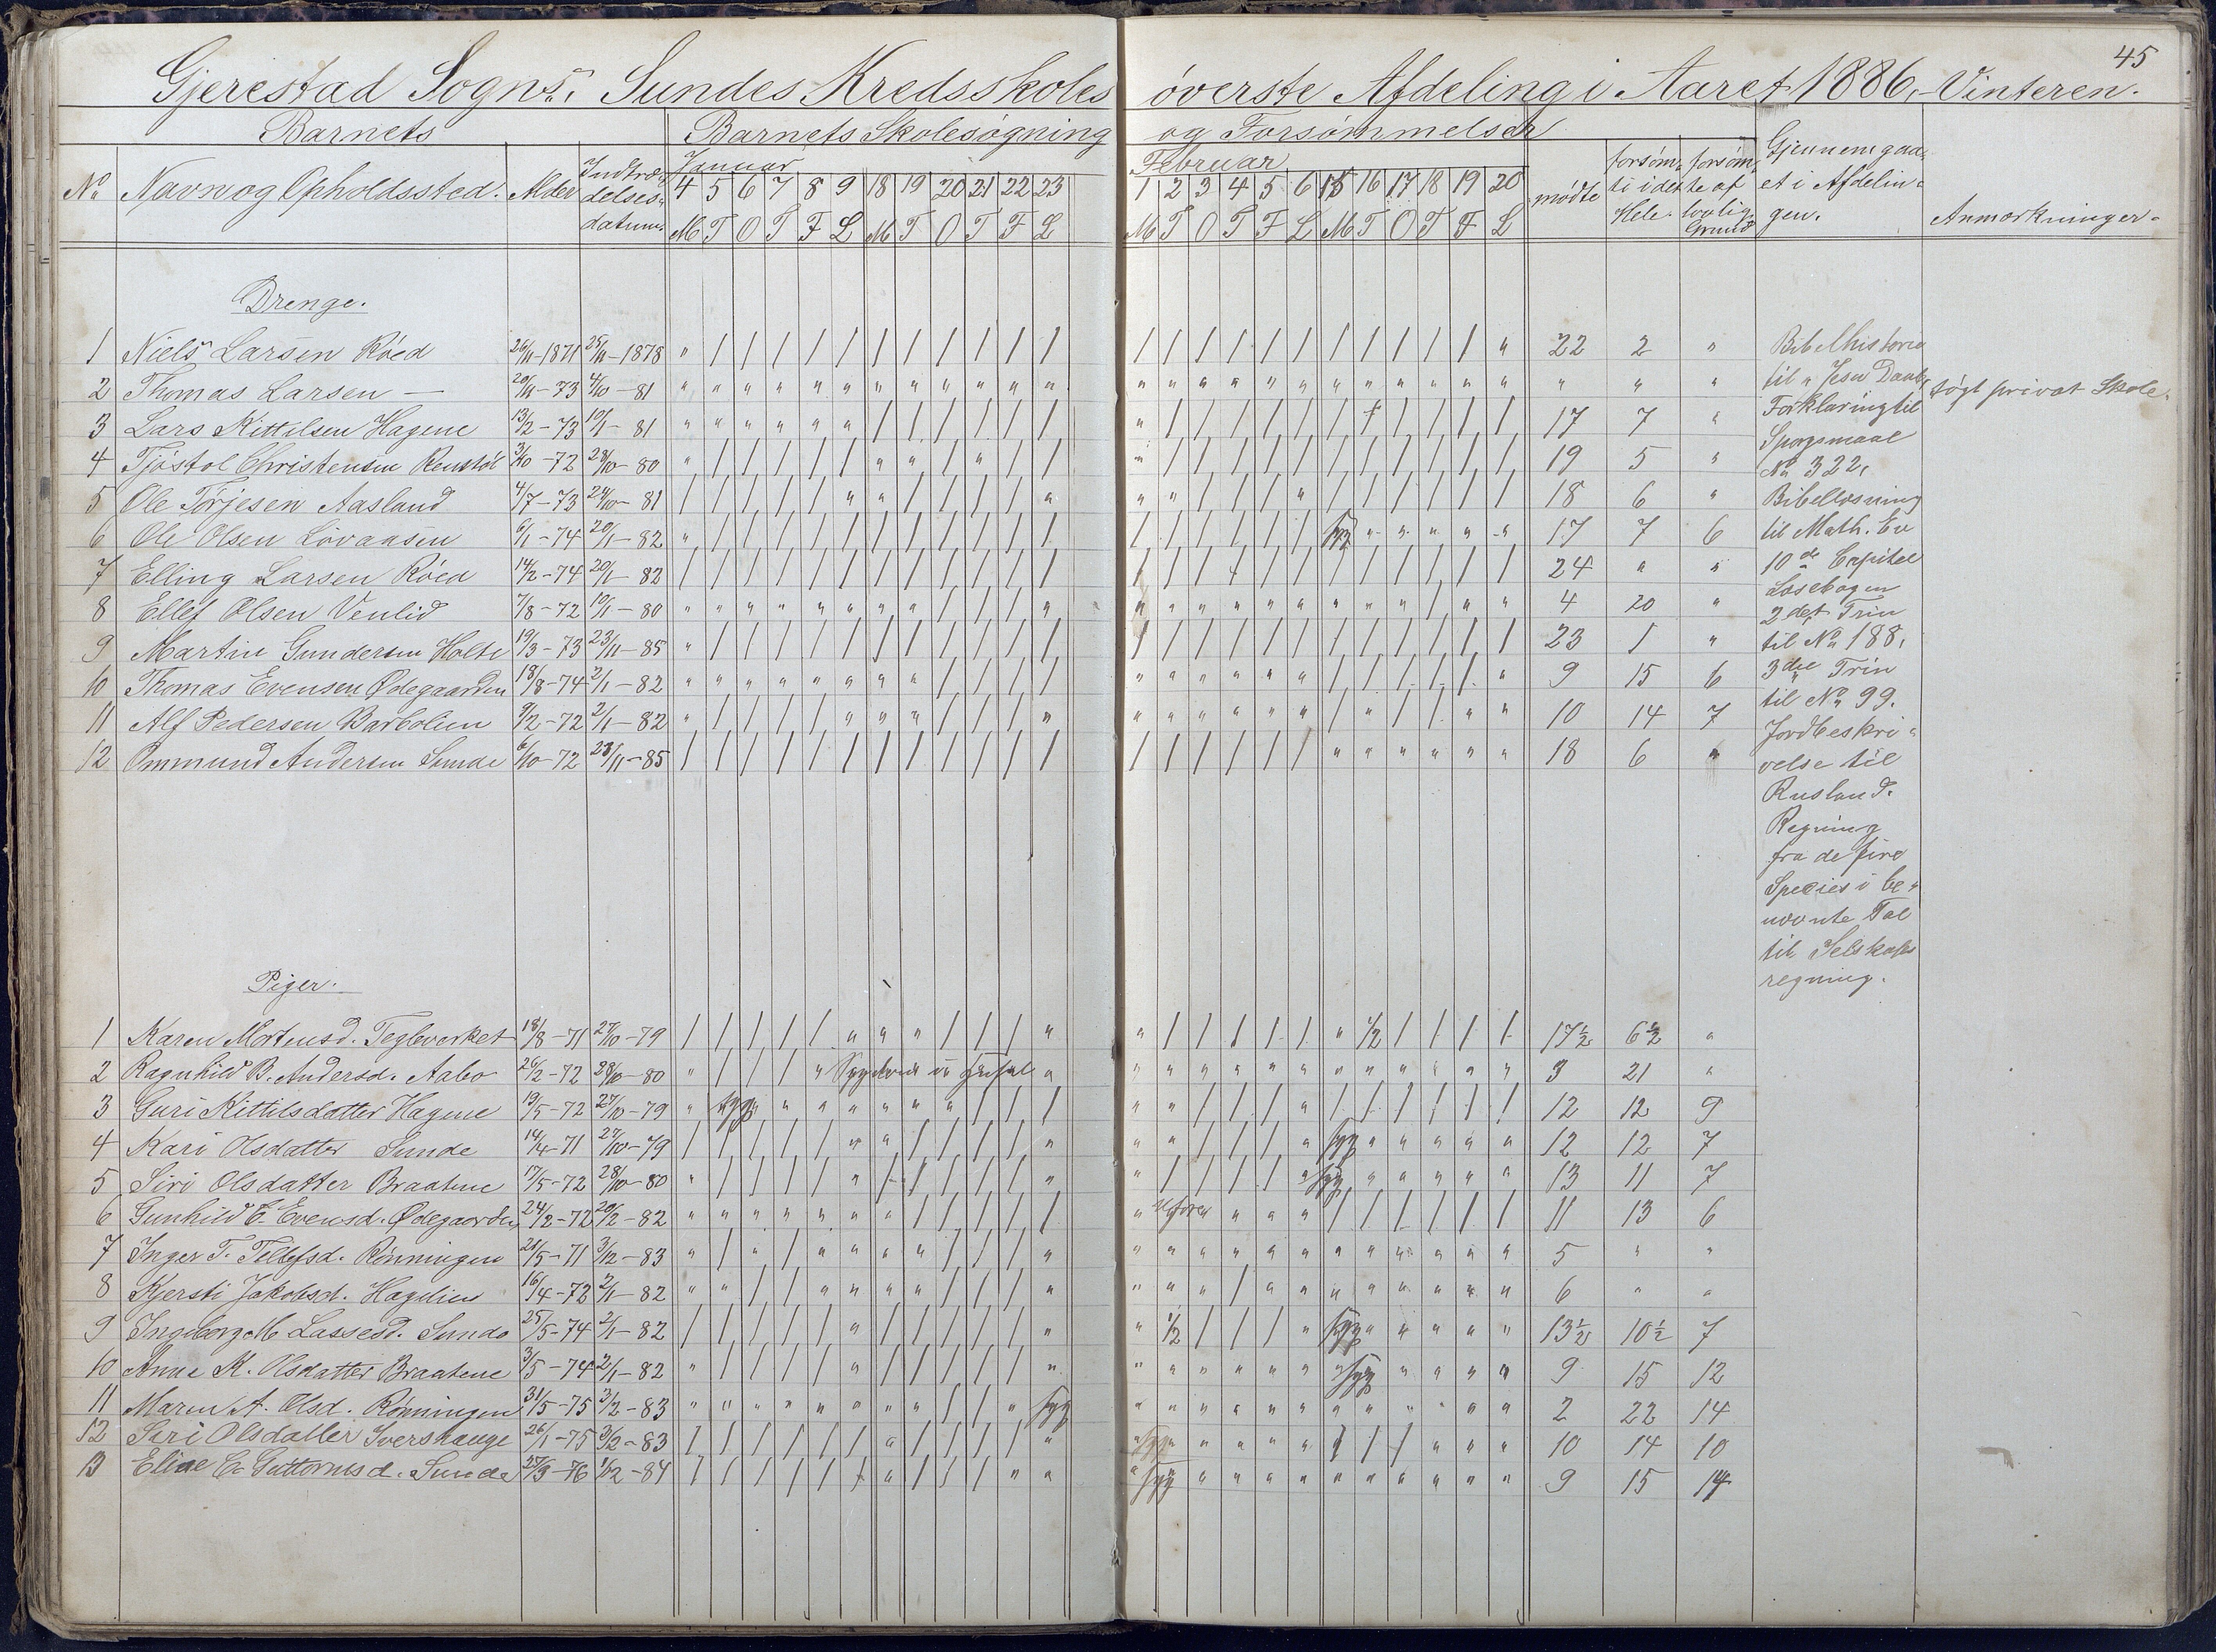 45
Gjerestad Sogns. Sundes Kredsskoles øverste Afdeling i Aaret 1886, Vinteren.
Barnets Barnets Skolesøgning og Forsømmelser
No Navn og Opholdssted. Alder Indtrædelsesdatum. Januar Februar mødte forsømti i det Hele. forsømte af lovlig Grund Gjennemgaaet i Afdelingen. Anmærkninger.
4 5 6 7 8 9 18 19 20 21 22 23 1 2 3 4 5 6 15 16 17 18 19 20
M T O T F L M T O T F L M T O T F L M T O T F L
Drenge.
1 Niels Larsen Røed 26/11-1871 25/11-1878 " / / / / / / / / / / / / / / / / / / / / / / " 22 2 "
2 Thomas Larsen — 20/11-73 4/10-81 " " " " " " " " " " " " " " " " " " " " " " " " " " " søgt privat Skole.
3 Lars Kittilsen Hagene 13/2-73 10/1-81 " " " " " " / / / / / / " / / / / / / / / / / / 17 7 "
4 Tjøstol Christensen Renstøl 3/10-72 28/10-80 " / / / / / " " / " / / " / / / / / / / / / / / 19 5 "
5 Ole Torjesen Aasland 4/7-73 24/10-81 / / / / / " " / / / / " " " / / / " / / / / / / 18 6 "
6 Ole Olsen Løvaasen 6/1-74 20/1-82 " / / / / / / / / / / / / / / / / / syg " " " " " 17 7 6
7 Elling Larsen Røed 14/2-74 20/1-82 / / / / / / / / / / / / / / / / / / / / / / / / 24 " "
8 Ellef Olsen Venlid 7/8-72 10/1-80 " " " " " " " " / / / " " " " " " " " " " / " " 4 20 "
9 Martin Gundersen Holte 19/3-73 23/11-85 " / / / / / / / / / / / / / / / / / / / / / / / 23 1 "
10 Thomas Evensen Ødegaarden 18/8-74 2/1-82 " " " " " " " " / / / / " " " " " " / / / / / " 9 15 6
11 Alf Pedersen Barbolien 9/2-72 2/1-82 " / / / / " " " / / / " " " " " " " / " / / " " 10 14 7
12 Ommund Andersen Sunde 6/10-72 23/11-85 / / / / / / / / / / / / / / / / / / " " " " " " 18 6 "
Bibelhistorie
til " Jesu Daab,
Forklaring til
Spørgsmaal
No 322,
Bibellæsning
til Math. Ev
10de Capitel
Læsebogen
2det Trin
til No 188,
3die Trin
til No 99.
Jordbeskri-
velse til
Rusland.
Regning
fra de fire
Species i be-
nævnte Tal
til Selskabs
regning.
Piger.
1 Karen Mortensd. Teglverket 18/8-71 27/10-79 / / / / / " " " / / / " " / / / / / " 1/2 / / / / 17½ 6½ "
2 Ragnhild B. Andersd. Aabo 26/2-72 28/10-80 " / / / " " " " " " " " " " " " " " 3 21 "
3 Guri Kittilsdatter Hagene 19/5-72 27/10-79 " syg " " " " " " / / / " " / / / " / / / / / / 12 12 9
4 Kari Olsdatter Sunde 14/4-71 27/10-79 / / / / / " " / / / / " " " / / / " syg " " " " " 12 12 7
5 Siri Olsdatter Braatene 17/5-72 28/10-80 " / / / / " / / / / / " " / / / / " syg " " " " " 13 11 7
6 Gunhild E. Evensd. Ødegaarden 24/2-72 20/2-82 " " " " " " " / / / / / " " " " / / / / / / 11 13 6
7 Inger T. Tellefsd. Rønningen 21/5-71 3/12-83 " / " / " " " " / / / " " " " " " " " " " " " " 5 " "
8 Kjersti Jakobsd. Hagelien 16/4-72 2/1-82 " " / / " " " " / / / " " " " / " " " " " " " " 6 " "
9 Ingeborg M Lassesd. Sunde 25/5-74 2/1-82 / / / / / " / / / / / " " 1/2 / / / " syg " " " " " 13½ 10½ 7
10 Anne K. Olsdatter Braatene 3/5-74 2/1-82 " / / / / " / / / / / " " " " " " " syg " " " " " 9 15 12
11 Maren A. Olsd. Rønningen 31/5-75 3/2-83 " " " " " " " " / / " syg " " " " " " " " " " " " 2 22 14
12 Siri Olsdatter Svershauge 26/1-75 3/2-83 / / / / / / " / / / / " syg " " " " " / / / " " " 10 14 10
13 Eline C. Guttormsd. Sunde 27/3-76 1/2-84 / / / / / / " / / / " " syg " " " " " " " " " " " 9 15 14